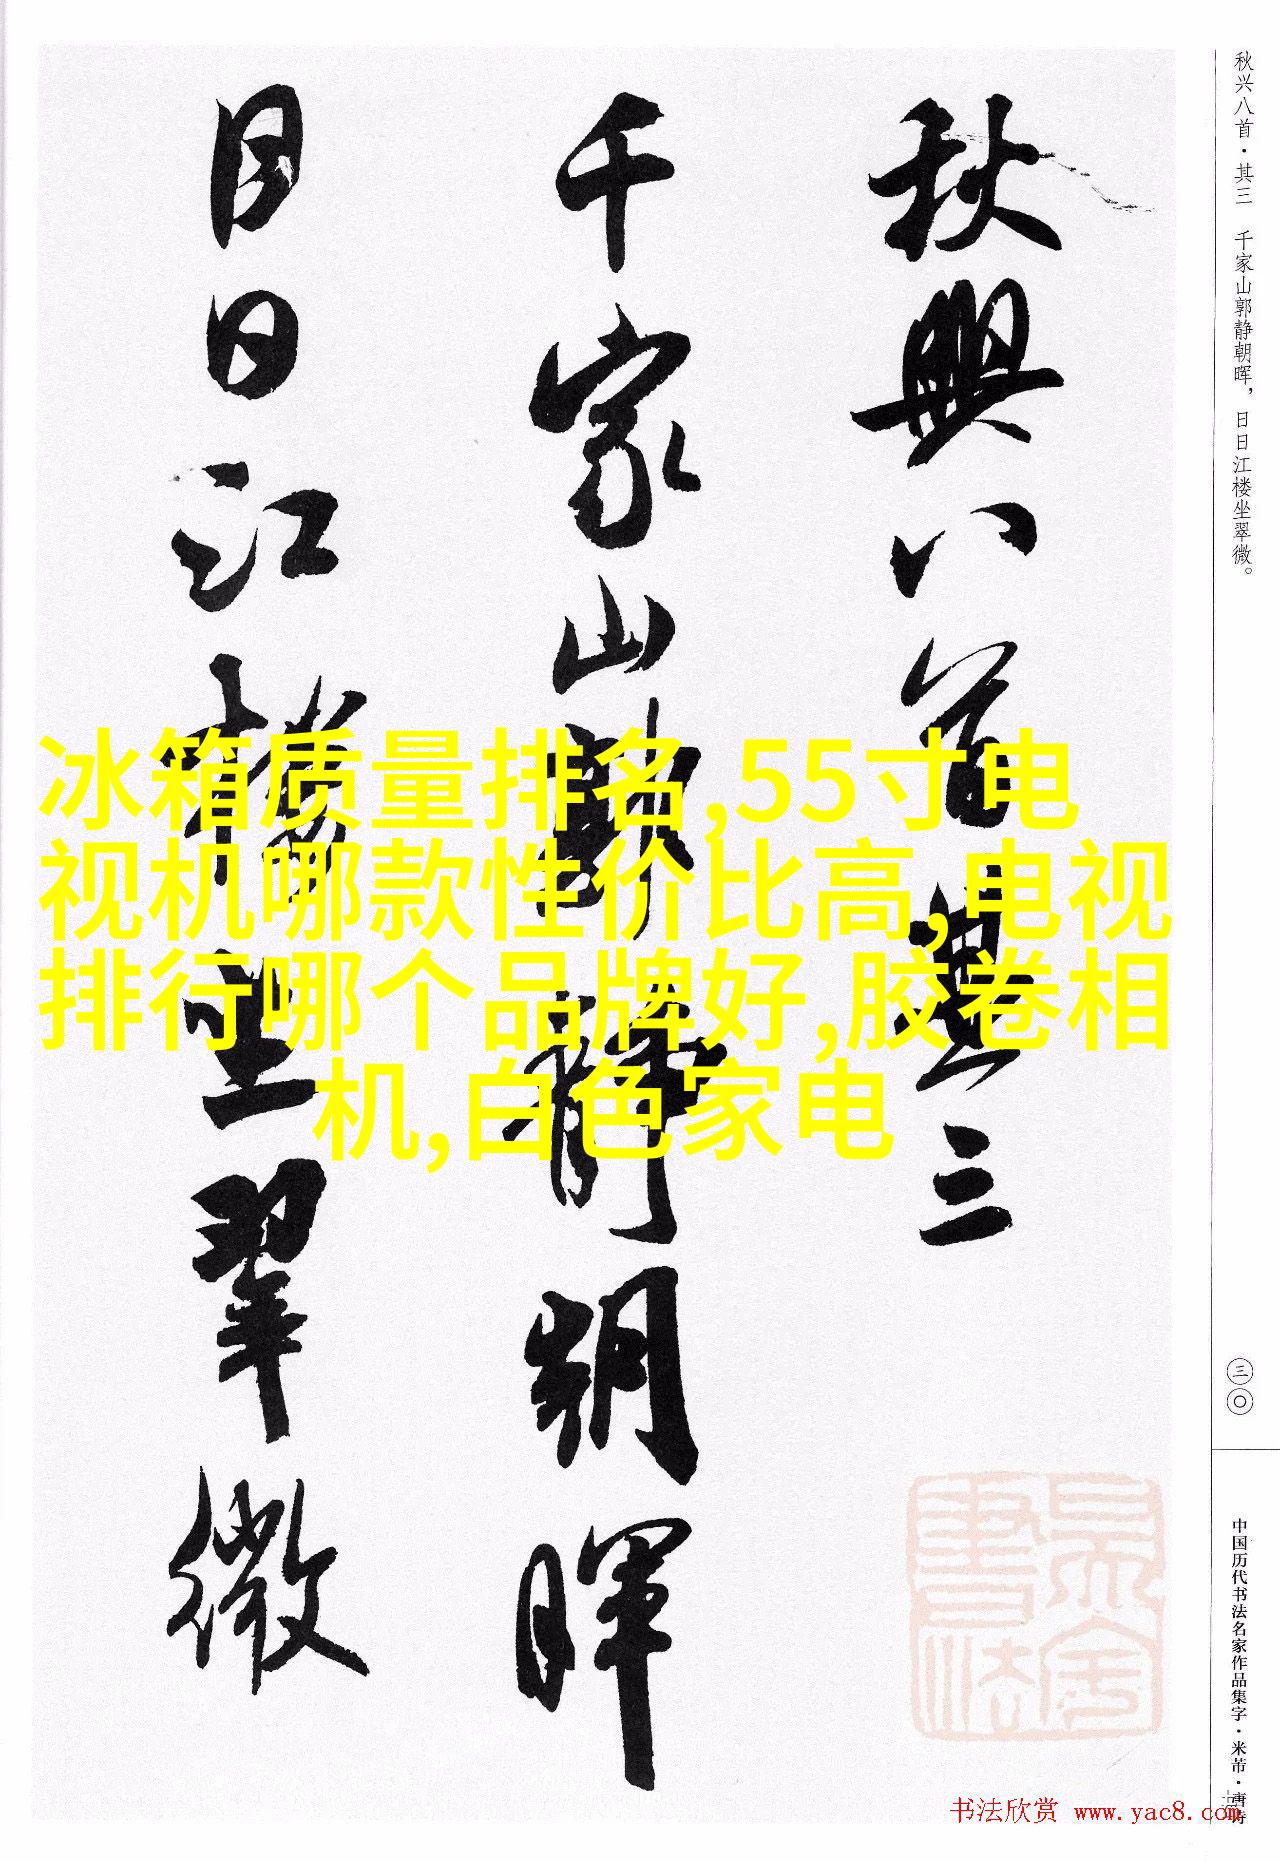 秋兴八首·其三 千家山郭静朝晖，日日江楼坐翠微。
三〇
中国历代书法名家作品集字·米芾·唐诗
秋興八首其三
千家山郭靜朝暉
日日江樓坐翠微
冰箱质量排名,55寸电
视机哪款性价比高,电视
排行哪个品牌好,胶卷相
机,白色家电
书法欣赏 www.yac8.com